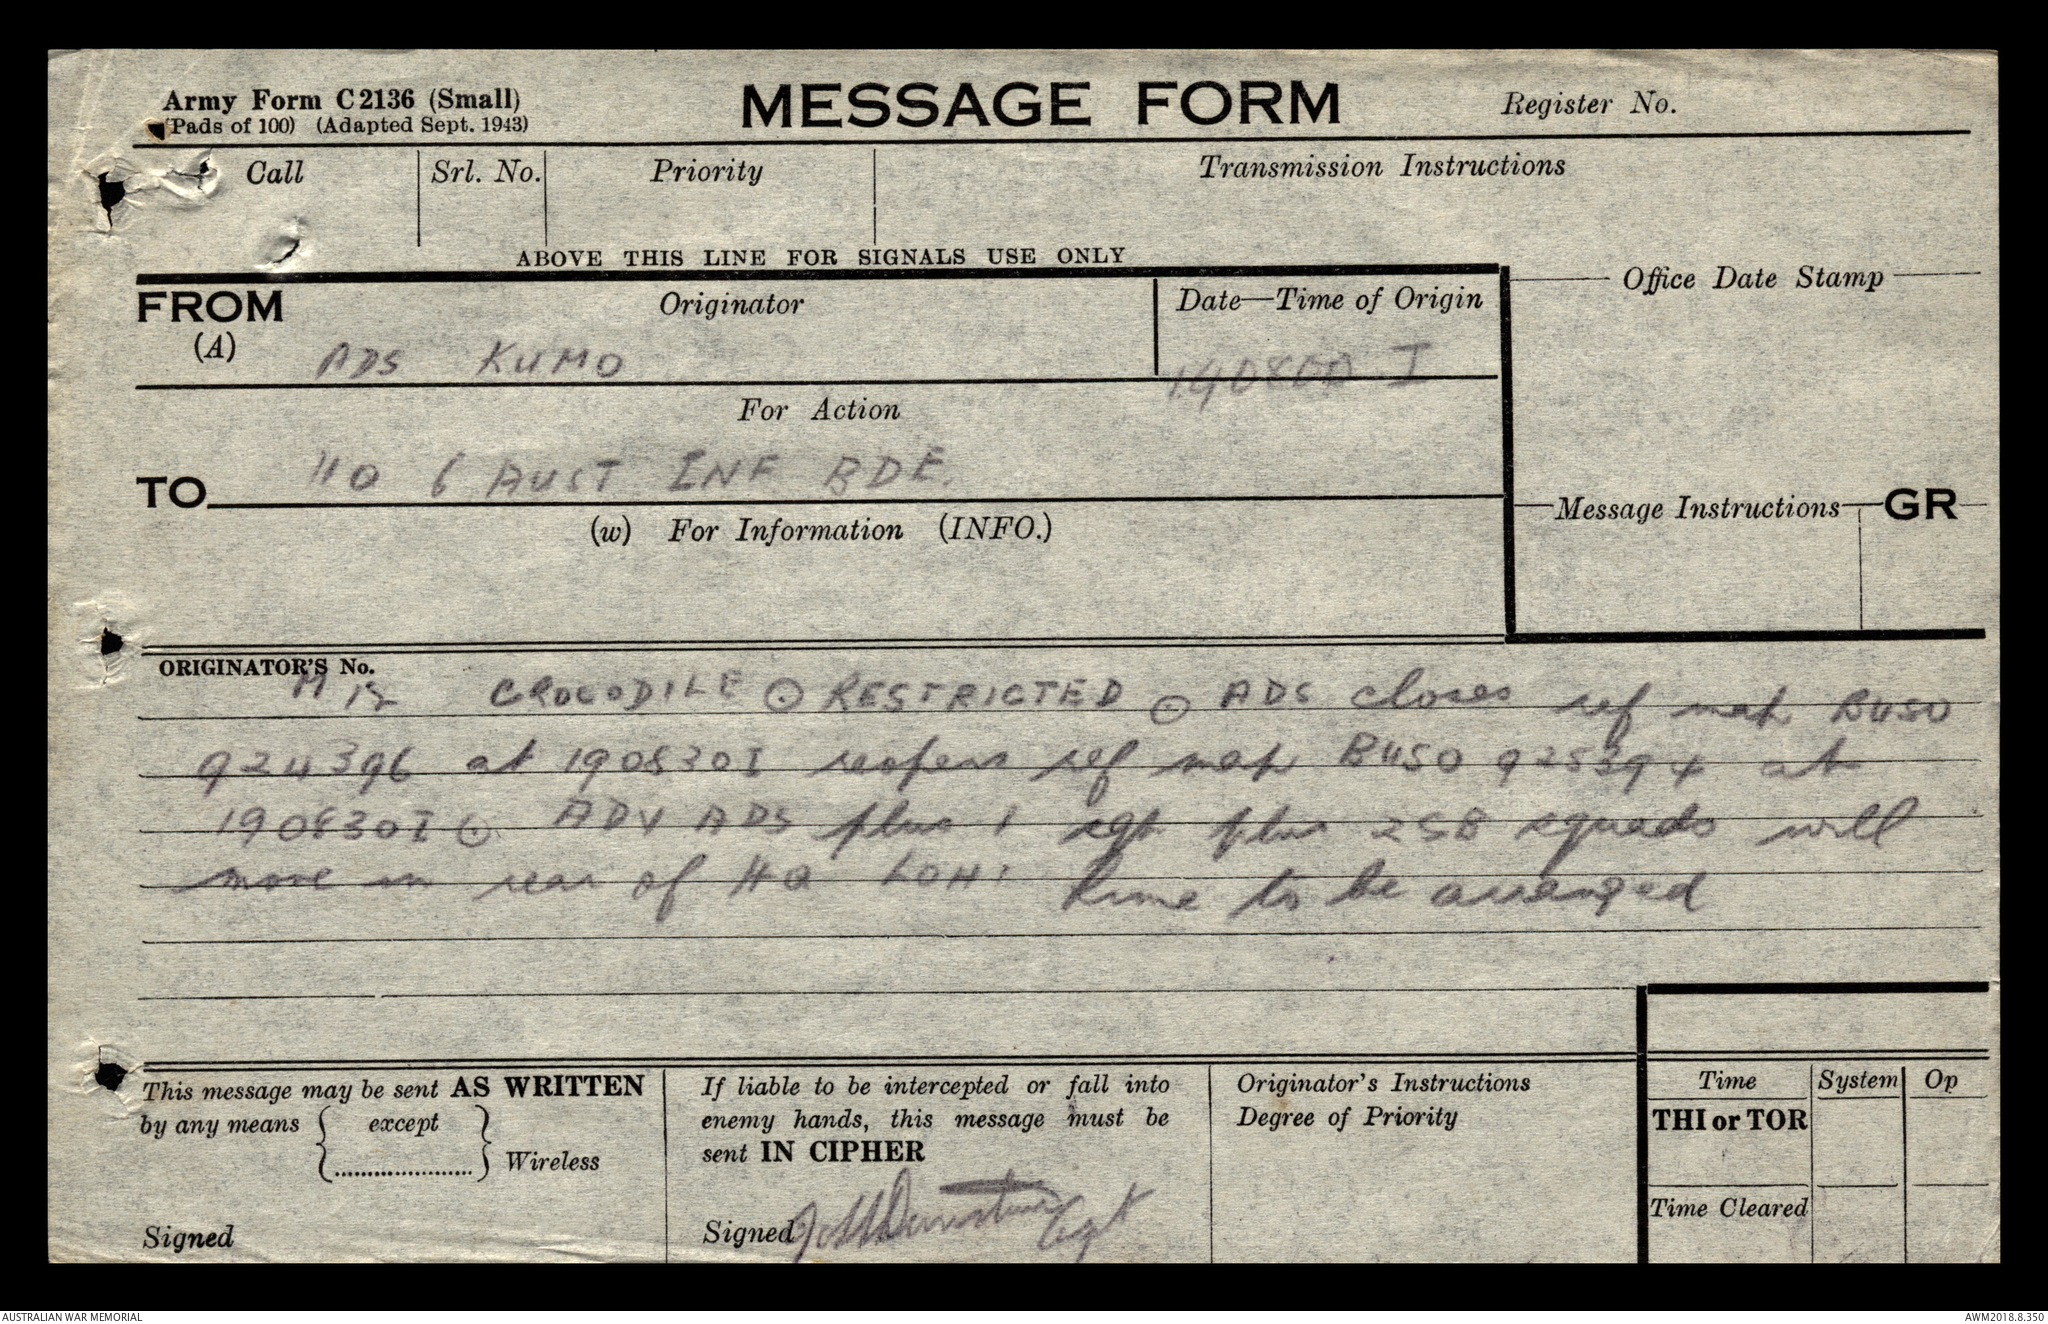 Army Form C2136 (Small)
(Pads of 100) (Adapted Sept. 1943)
MESSAGE FORM
Register No.
Call Srl. No. Priority Transmission Instructions
ABOVE THIS LINE FOR SIGNALS USE ONLY
FROM (A) Originator Date—Time of Origin Office Date Stamp
ADS KUMO 140800 I
For Action
HQ 6 AUST INF BDE.
TO
(w) For Information (INFO.)
Message Instructions GR
ORIGINATOR'S No.
M 12 CROCODILE ⊙ RESTRICTED ⊙ ADS closes ref map BUSO
924396 at 190830I reopens ref map BUSO 925394 at
190830I ⊙ ADV ADS plus 1 sgt plus 2 SB squads will
move in rear of HQ time to be arranged
This message may be sent AS WRITTEN
by any means { except .................... } Wireless
Signed
If liable to be intercepted or fall into
enemy hands, this message must be
sent IN CIPHER
Signed Capt
Originator's Instructions
Degree of Priority
Time System Op
THI or TOR
Time Cleared
AUSTRALIAN WAR MEMORIAL
AWM2018.8.350